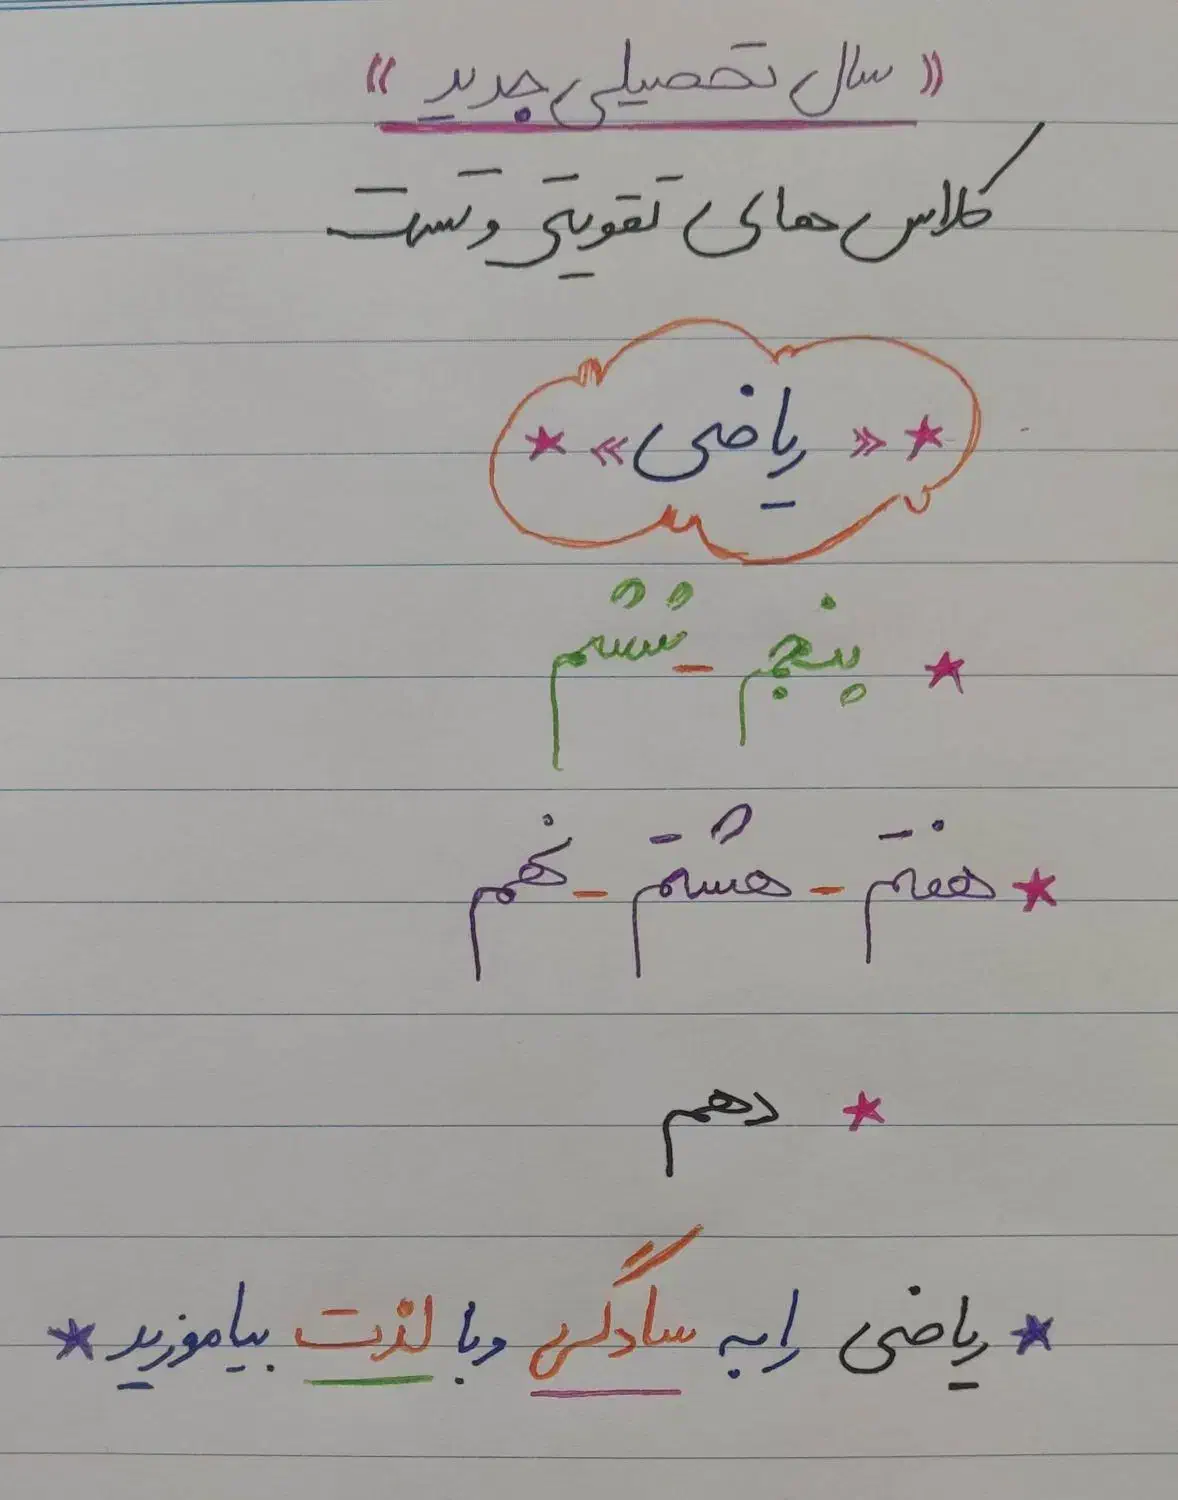 « سال تحصیلی جدید »
کلاس های تقویتی و تست
★ « ریاضی » ★
★ پنجم - ششم
★ هفتم - هشتم - نهم
★ دهم
★ ریاضی را به سادگی و با لذت بیاموزید ★